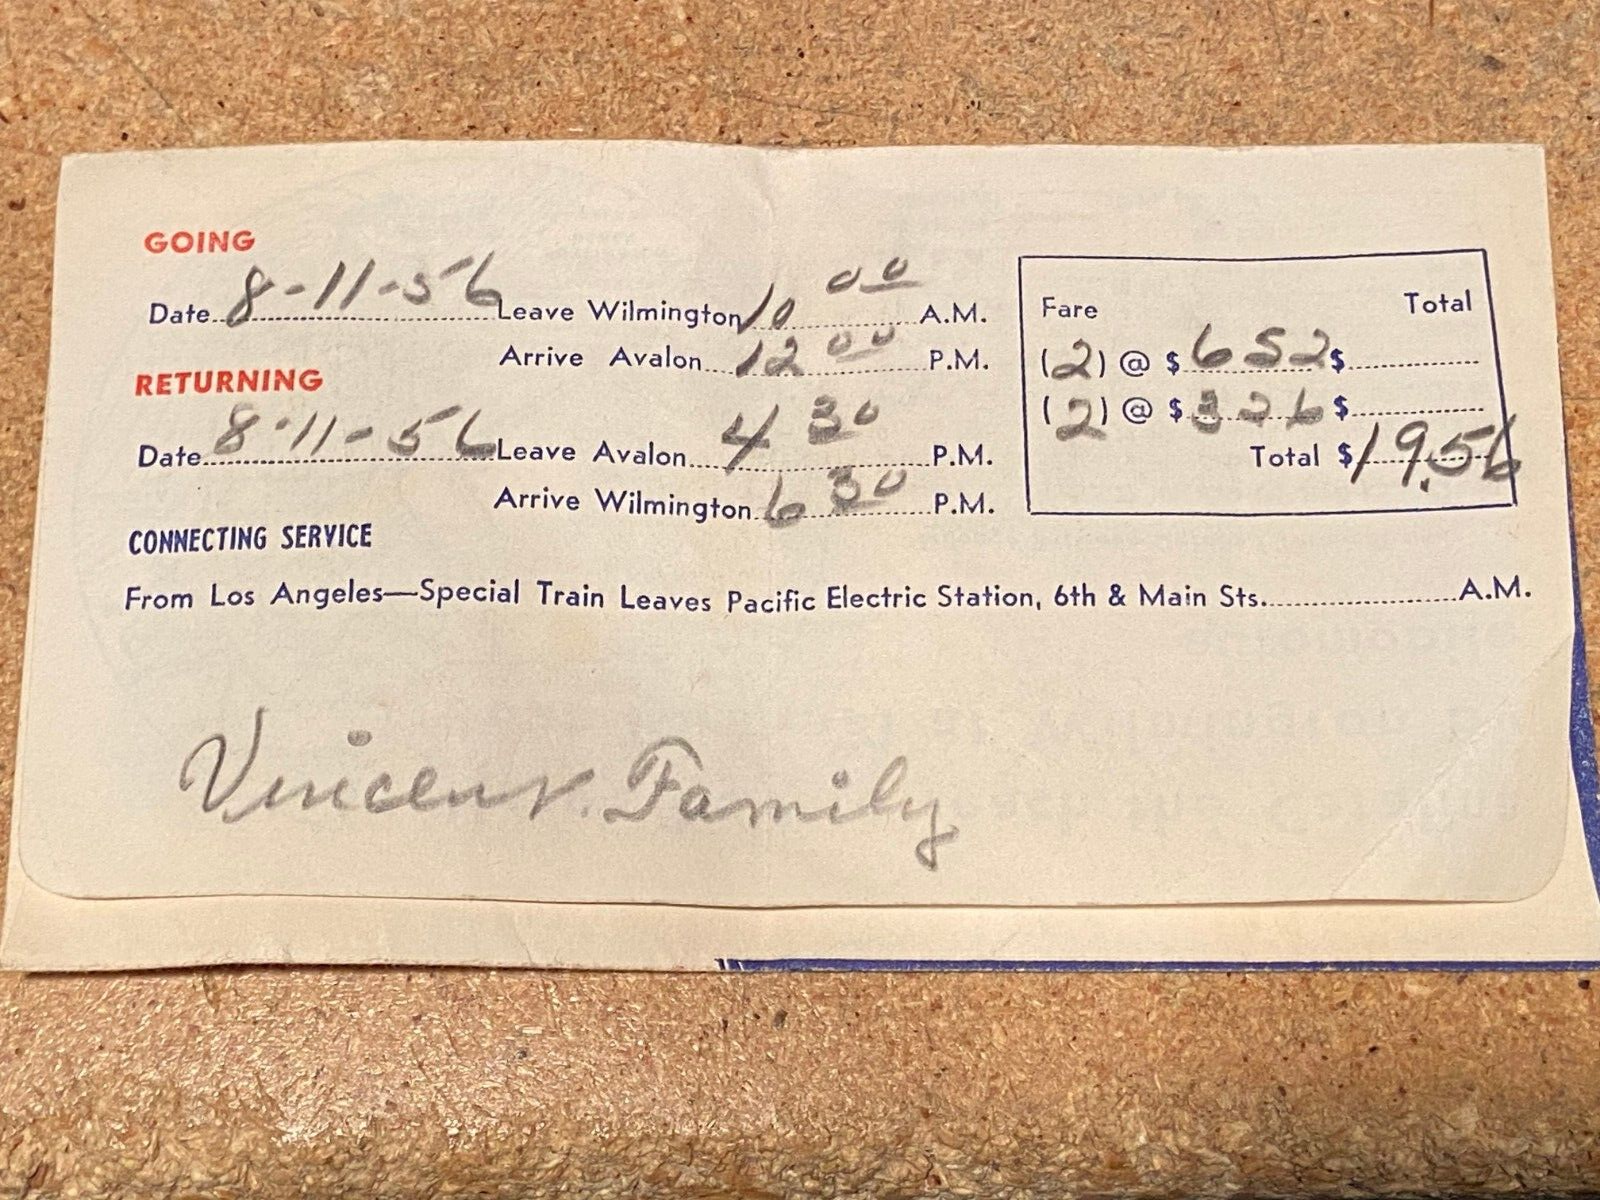 GOING
Date 8-11-56 Leave Wilmington 10 00 A.M.
Arrive Avalon 12 00 P.M.
RETURNING
Date 8-11-56 Leave Avalon 4 30 P.M.
Arrive Wilmington 6 30 P.M.
Fare Total
(2) @ $ 6 52 $
(2) @ $ 3 26 $
Total $ 19.56
CONNECTING SERVICE
From Los Angeles—Special Train Leaves Pacific Electric Station, 6th & Main Sts. A.M.
Vincent Family